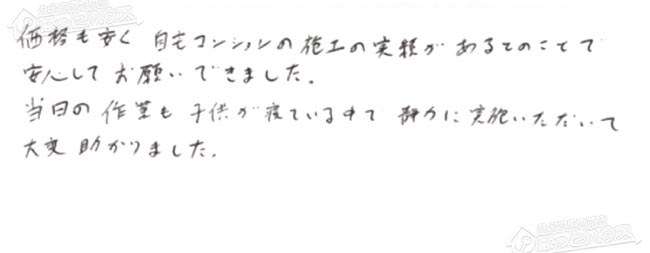 価格も安く 自宅マンションの施工の実績があるとのことで
安心してお願いできました。
当日の作業も子供が寝ている中で静かに実施いただいて
大変助かりました。